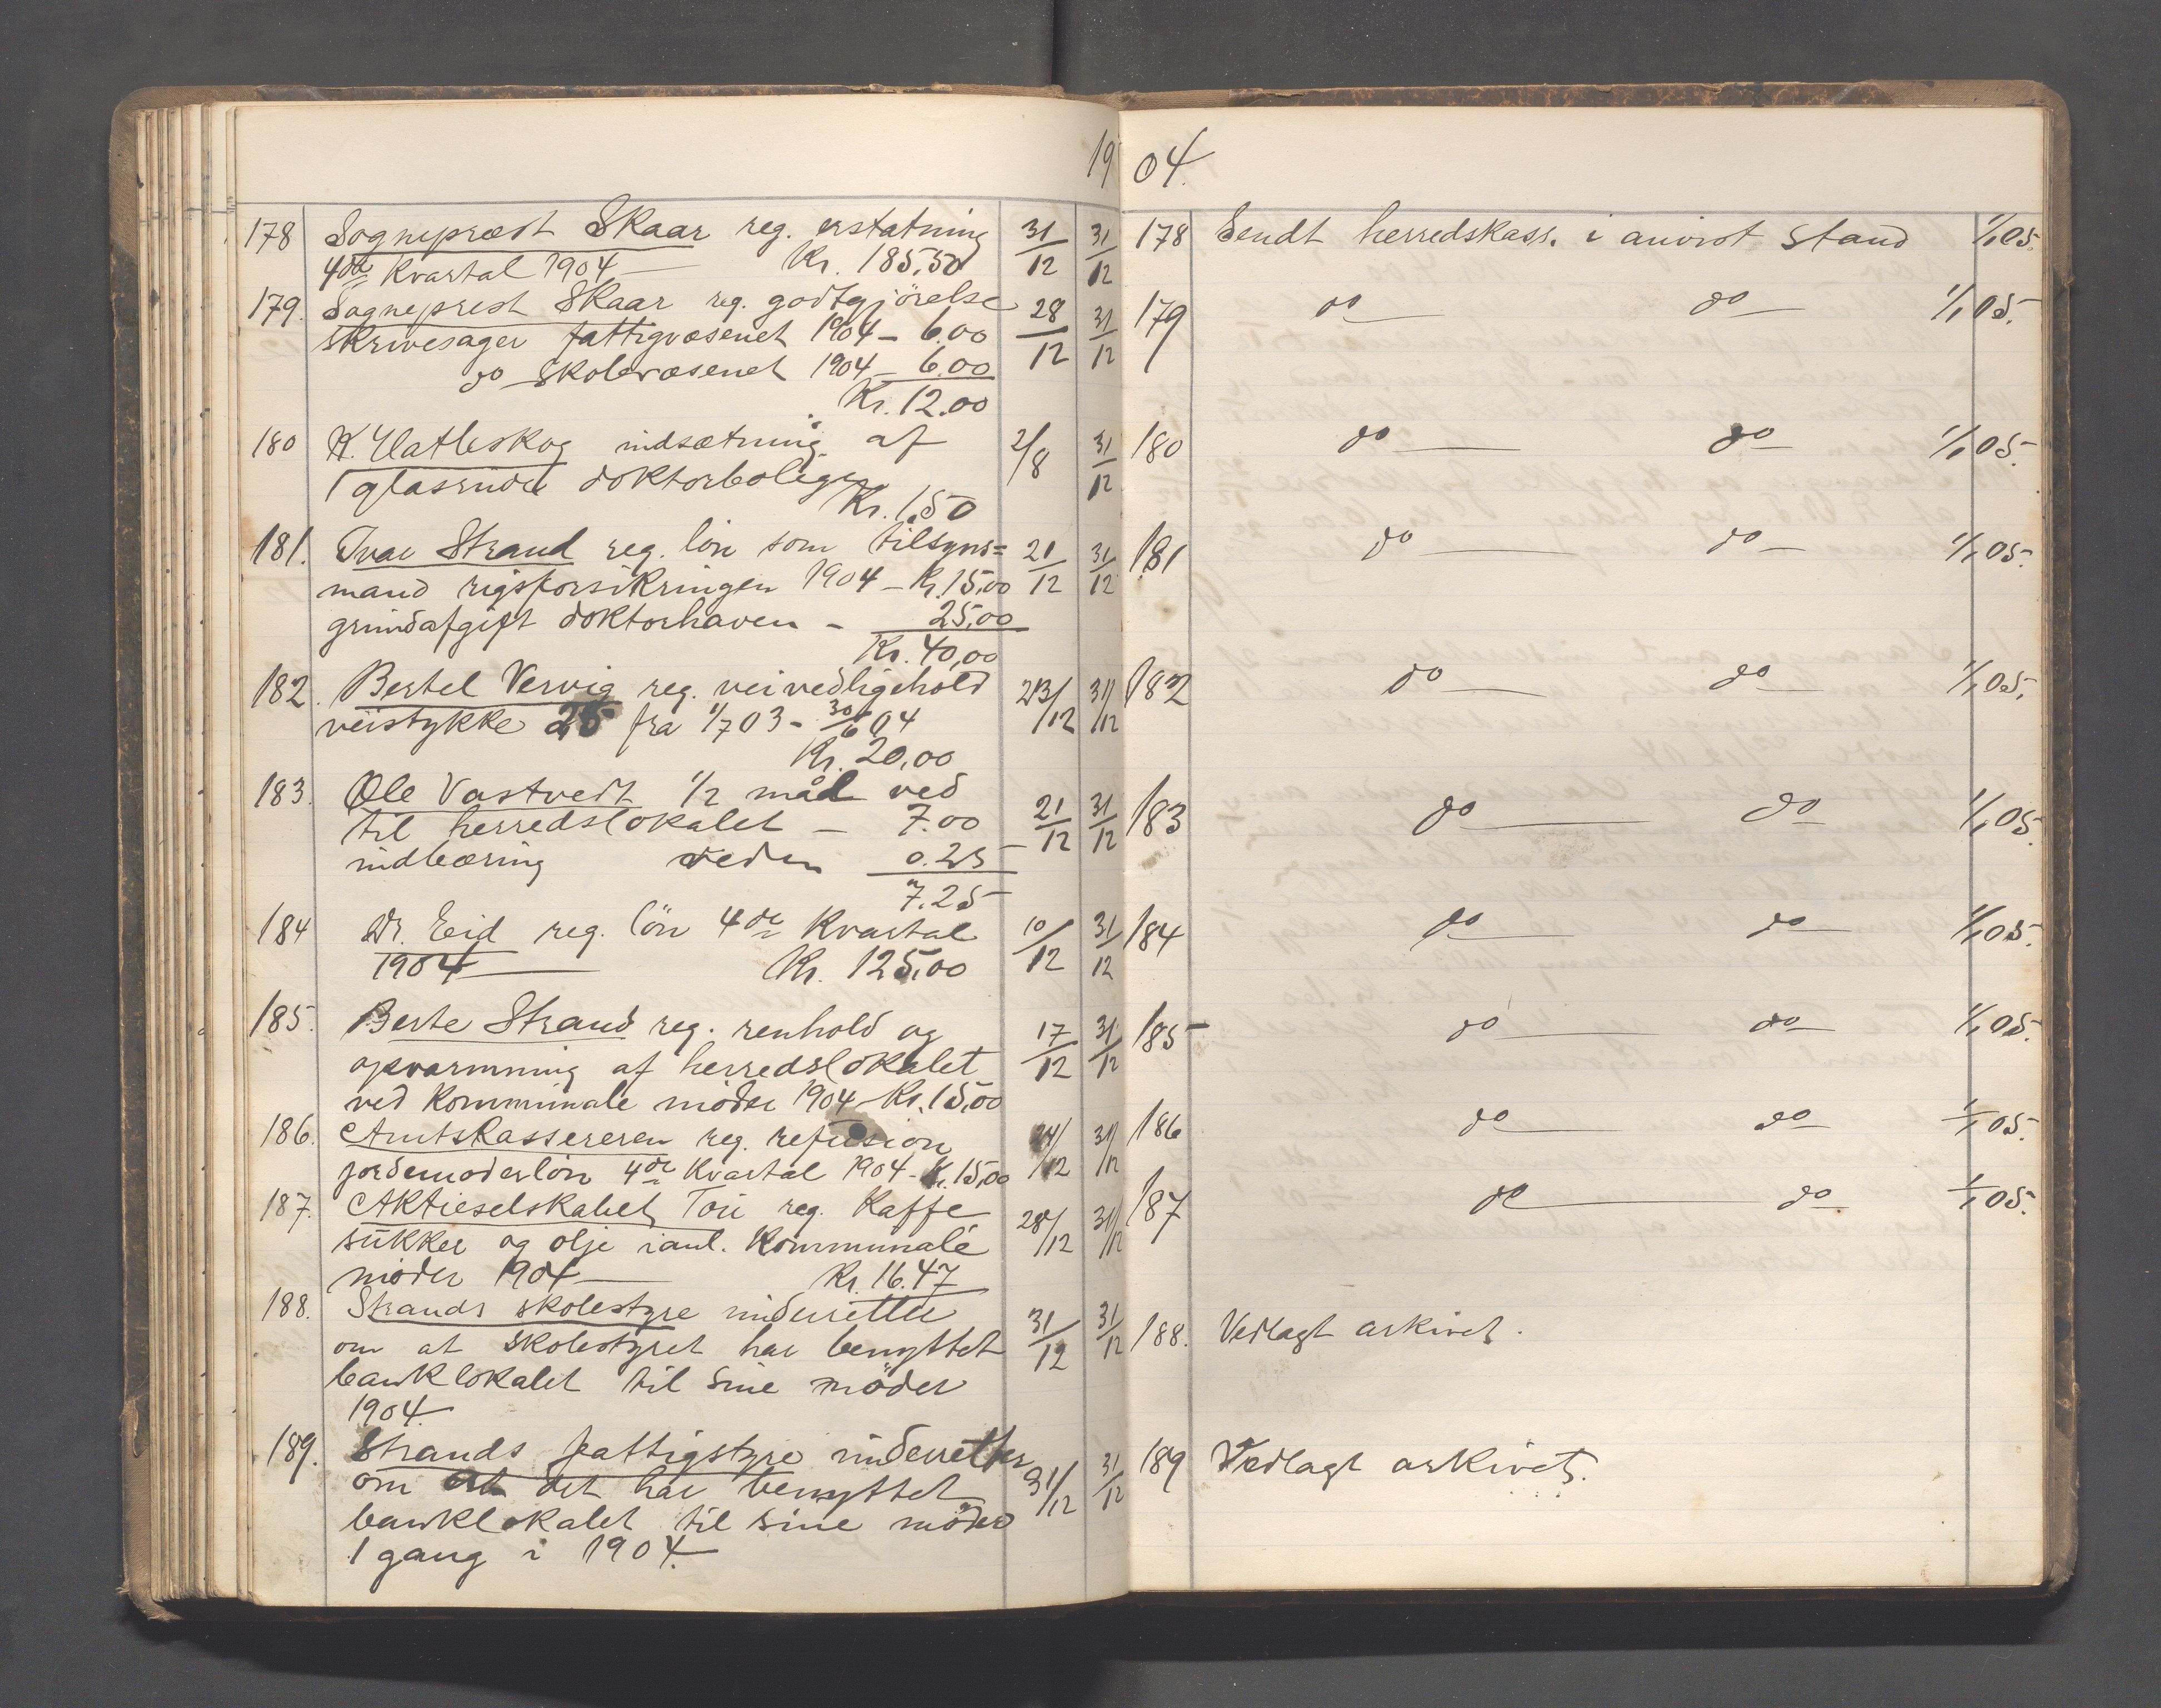 1904.
178 Sogneprest Skaar reg. erstatning 31/12 31/12
4de Kvartal 1904 — Kr. 185,50
179. Sogneprest Skaar reg. godtgjörelse 28/12 31/12
skrivesager fattigvæsenet 1904 – 6.00
do skolevæsenet 1904 – 6.00
Kr. 12.00
180 K. Hatleskog indsætning af 2/8 31/12
1 glasrude doktorboligen
Kr. 1,50
181. Ivar Strand reg. lön som tilsyns= 21/12 31/12
mand rigsforsikringen 1904 – Kr. 15,00
grundafgift doktorhaven – 25,00
Kr. 40,00
182. Bertel Vervig reg. veivedligehold 23/12 31/12
veistykke 25 fra 1/7 03 - 30/6 04
Kr. 20,00
183. Ole Vastvedt 1/2 mål ved 21/12 31/12
til herredslokalet – 7.00
indbæring veden 0.25
7.25
184 Dr. Eid reg. lön 4de Kvartal 10/12 31/12
1904 — Kr. 125,00
185. Berte Strand reg. renhold og 17/12 31/12
opvarmning af herredslokalet
ved Kommunale möder 1904 – Kr. 15,00
186. Amtskassereren reg. refusion 24/12 31/12
jordemoderlön 4de Kvartal 1904 - Kr. 15,00
187. Aktieselskabet Tou reg. Kaffe 28/12 31/12
sukker og olje ianl. Kommunale
möder 1904 — Kr. 16.47
188. Strands skolestyre underretter 31/12 31/12
om at skolestyret har benyttet
banklokalet til sine möder
1904.
189. Strands fattigstyre underretter 31/12 31/12
om at det har benyttet
banklokalet til sine möder
1 gang i 1904.
178 Sendt herredskass. i anvist stand 1/1 05.
179 do — do — 1/1 05.
180 do — do — 1/1 05.
181 do — do — 1/1 05.
182 do — do — 1/1 05.
183 do — do 1/1 05.
184 do — do — 1/1 05.
185 do — do — 1/1 05.
186 do — do — 1/1 05.
187 do — do — 1/1 05.
188. Vedlagt arkivet.
189 Vedlagt arkivet.